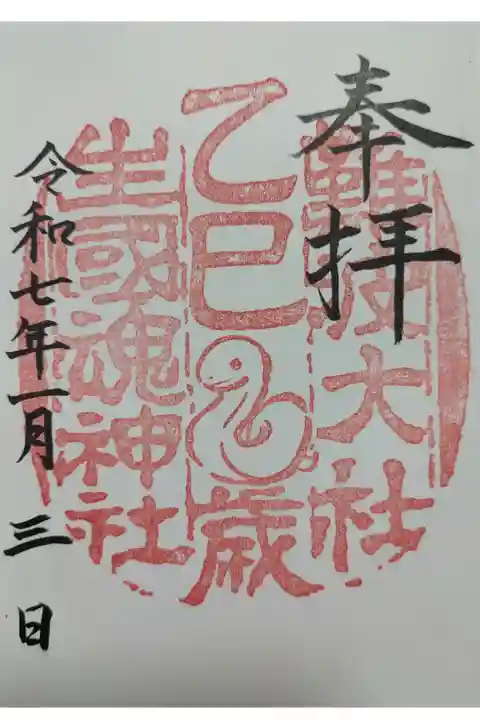 奉拝
難波大社
乙巳歳
生國魂神社
令和七年一月三日